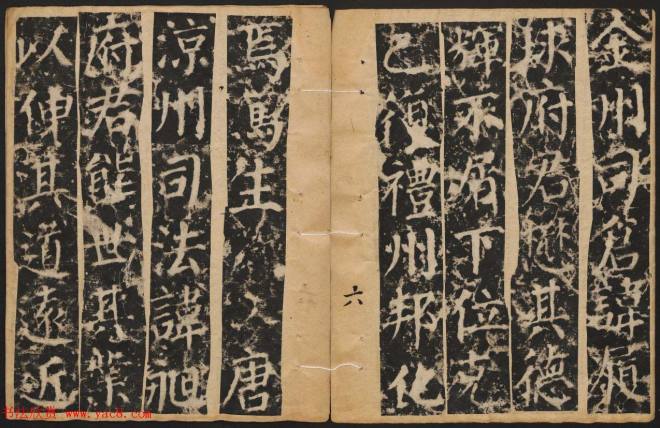 金州司諱
府君懋其德
輝不屑下位克
己復禮州邦化
六
焉篤生唐
涼州司法諱昶
府君能世其業
以伸其道遠近
书法欣赏 www.yac8.com